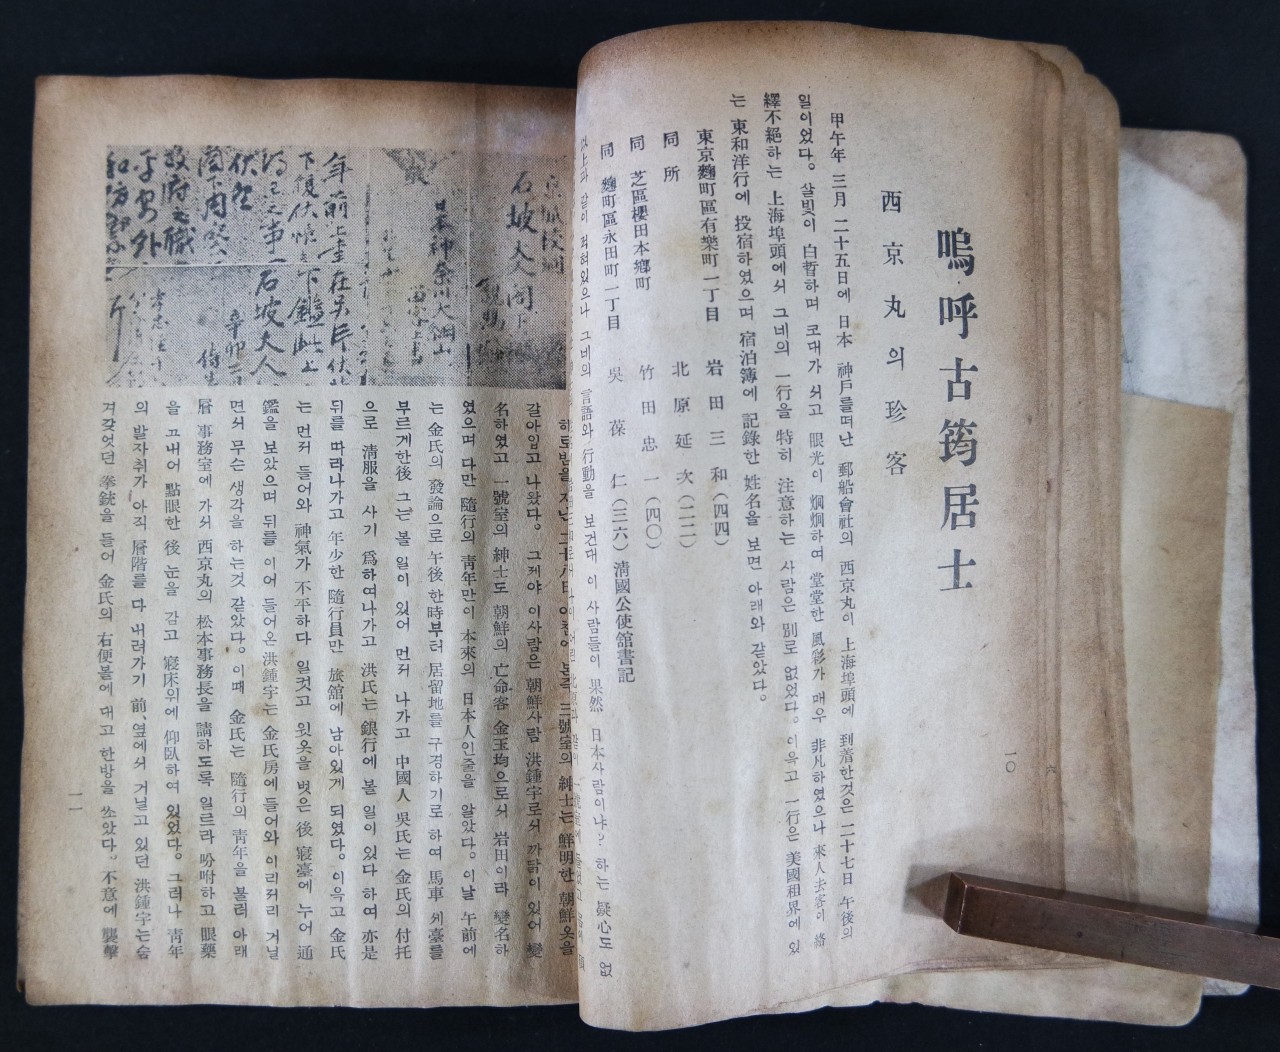 嗚呼古筠居士
西京丸의珍客
甲午年 三月 二十五日에 日本 神戶를떠난 郵船會社의 西京丸이 上海埠頭에 到着한것은 二十七日 午後의
일이었다。 살빛이 白晳하며 코대가 서고 眼光이 烱烱하여 堂堂한 風彩가 매우 非凡하였으나 來人去客이 絡
繹不絕하는 上海埠頭에서 그네의 一行을 特히 注意하는 사람은 別로 없었다。 이윽고 一行은 美國租界에 있
는 東和洋行에 投宿하였으며 宿泊簿에 記錄한 姓名을 보면 아래와 같았다。
東京麴町區有樂町一丁目 岩田三和(四四)
同所 北原延次(二二)
同 芝區櫻田本鄕町 竹田忠一(四〇)
同 麴町區永田町一丁目 吳葆仁(三六)淸國公使館書記
以上과 같이 적혀있으나 그네의 言語와 行動을 보건대 이 사람들이 果然 日本사람이냐? 하는 疑心도 없
一〇
六
石坡大人閤下
日本神奈川大綱山
年前上書在
下復伏惟 下鑑此上
石坡大人
하로밤을 지난 二十八日 아침에 본즉 三號室의 紳士는 鮮明한 朝鮮옷을
갈아입고 나왔다。 그제야 이사람은 朝鮮사람 洪鍾宇로서 까닭이 있어 變
名하였고 一號室의 紳士도 朝鮮의 亡命客 金玉均으로서 岩田이라 變名하
였으며 다만 隨行의 靑年만이 本來의 日本人인줄을 알았다。 이날 午前에
는 金氏의 發論으로 午後 한時부터 居留地를 구경하기로 하여 馬車 세臺를
부르게한後 그는 볼 일이 있어 먼저 나가고 中國人 吳氏는 金氏의 付托
으로 淸服을 사기 爲하여나가고 洪氏는 銀行에 볼 일이 있다 하여 亦是
뒤를 따라나가고 年少한 隨行員만 旅舘에 남아있게 되였다。 이윽고 金氏
는 먼저 들어와 神氣가 不平하다 일컷고 윗옷을 벗은 後 寢臺에 누어 通
鑑을 보았으며 뒤를 이어 들어온 洪鍾宇는 金氏房에 들어와 이리저리 거닐
면서 무슨 생각을 하는것 같았다。 이때 金氏는 隨行의 靑年을 불러 아래
層 事務室에 가서 西京丸의 松本事務長을 請하도록 일르라 吩咐하고 眼藥
을 끄내어 點眼한 後 눈을 감고 寢床위에 仰臥하여 있었다。 그러나 靑年
의 발자취가 아직 層階를 다 내려가기 前、옆에서 거닐고 있던 洪鍾宇는 숨
겨갖엇던 拳銃을 들어 金氏의 右便볼에 대고 한방을 쏘았다。 不意에 襲擊
一一